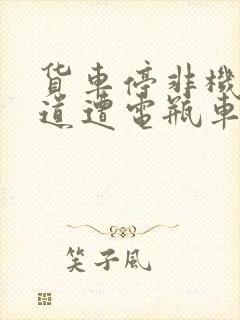 货車停非機
道遭電瓶車
笑子風